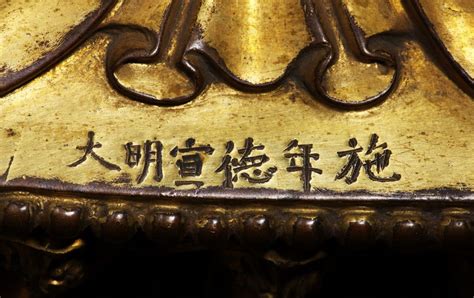 大明宣德年施